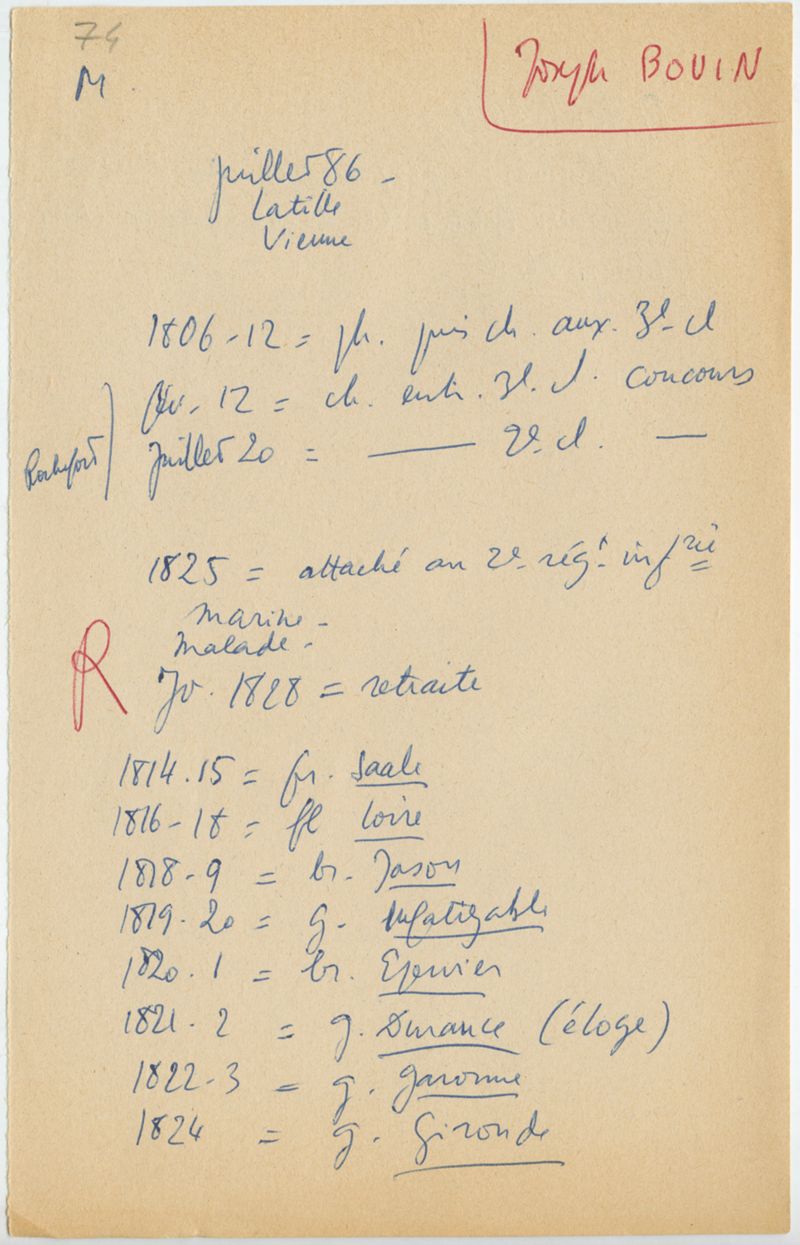 74
M.
Joseph BOUIN
Juillet 86 -
Latille
Vienne
1806-12 = ph. puis ch. aux. 3e cl
fév. 12 = ch. entr. 3e. cl. concours
Rochefort
Juillet 20 = —— 2e cl. —
1825 = attaché au 2e régt. inf rie
marine -
malade -
R
Jv. 1828 = retraite
1814.15 = fr. Saale
1816-18 = fl Loire
1818-9 = br. Jason
1819-20 = g. Infatigable
1820.1 = br. Epervier
1821-2 = g. Durance (éloge)
1822-3 = g. garonne
1824 = g. Gironde